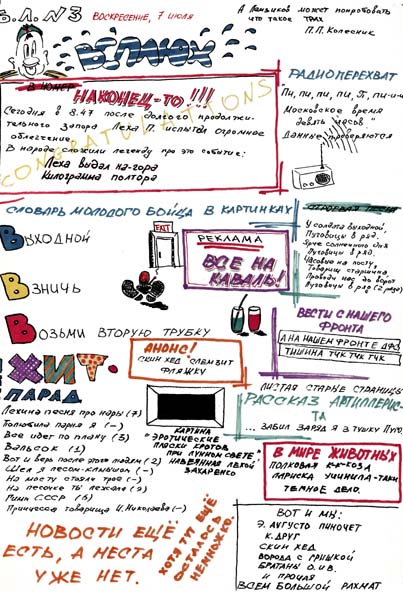 Б.Л. №3 ВОСКРЕСЕНИЕ, 7 ИЮЛЯ
А ЛАНДИКОВ МОЖЕТ ПОПРОБОВАТЬ
ЧТО ТАКОЕ ТРАХ
П.П. КОЛЕСНИК
В НОМЕР
НАКОНЕЦ-ТО!!!
CONGRATULATIONS
Сегодня в 8.47 после долгого продолжи-
тельного запора Леха П. испытал огромное
облегчение.
В народе сложили легенду про это событие:
Леха выдал на-гора
Килограмма полтора
РАДИОПЕРЕХВАТ
Пи, пи, пи, пи, пи, пи-и-и
Московское время
девять часов"
Данные проверяются
СЛОВАРЬ МОЛОДОГО БОЙЦА В КАРТИНКАХ
ВЫХОДНОЙ
EXIT
ВЗНИЧЬ
ВОЗЬМИ ВТОРУЮ ТРУБКУ
РЕКЛАМА
ВСЕ НА
КАВАЛЬ!
СТРОЕВАЯ ПЕСНЯ
У солдата выходной,
Пуговицы в ряд.
Ярче солнечного дня
Пуговицы в ряд.
Часовые на посту,
Товарищ старшина,
Проводи нас до ворот
Пуговицы в ряд (2 раза)
ВЕСТИ С НАШЕГО
ФРОНТА
А НА НАШЕМ ФРОНТЕ ДФЗ
ТИШИНА ТЧК ТЧК ТЧК
АНОНС!
СКИН ХЕД "СЛЕМЗИТ
ФЛЯЖКУ
ХИТ-
ПАРАД
Лехина песня про нары (7)
Полюбила парня я (-)
Все идет по плану (3)
Вальсок (1)
Вот и верь после этого людям (2)
Шел я лесом-камышом (-)
На мосту стояли трое (-)
На песочке ты лежала (9)
Гимн СССР (6)
Принцесса товарища И.Николаева (-)
КАРТИНА
"ЭРОТИЧЕСКИЕ
ПЛЯСКИ КРОТОВ
ПРИ ЛУННОМ СВЕТЕ"
НАВЕЯННАЯ ЛЕХОЙ
ЗАХАРЕНКО
ЛИСТАЯ СТАРЫЕ СТРАНИЦЫ
РАССКАЗ АРТИЛЛЕРИС-
ТА
... ЗАБИЛ ЗАРЯД Я ТУШКУ ПУГО.
В МИРЕ ЖИВОТНЫХ
ПОЛКОВАЯ
ЛАРИСКА УЧИНИЛА-ТАКИ
ТЕМНОЕ ДЕЛО.
НОВОСТИ ЕЩЁ
ЕСТЬ, А МЕСТА
УЖЕ НЕТ.
ХОТЯ ТУТ ЕЩЁ
ОСТАЛОСЬ
НЕМНОЖКО.
ВОТ И МЫ:
Э. АУГУСТО ПИНОЧЕТ
К. ДРУГ
СКИН ХЕД
ВОРОДА С ГРИШКОЙ
БРАТАНЫ О. И В.
И ПРОЧАЯ
ВСЕМ БОЛЬШОЙ РАХМАТ